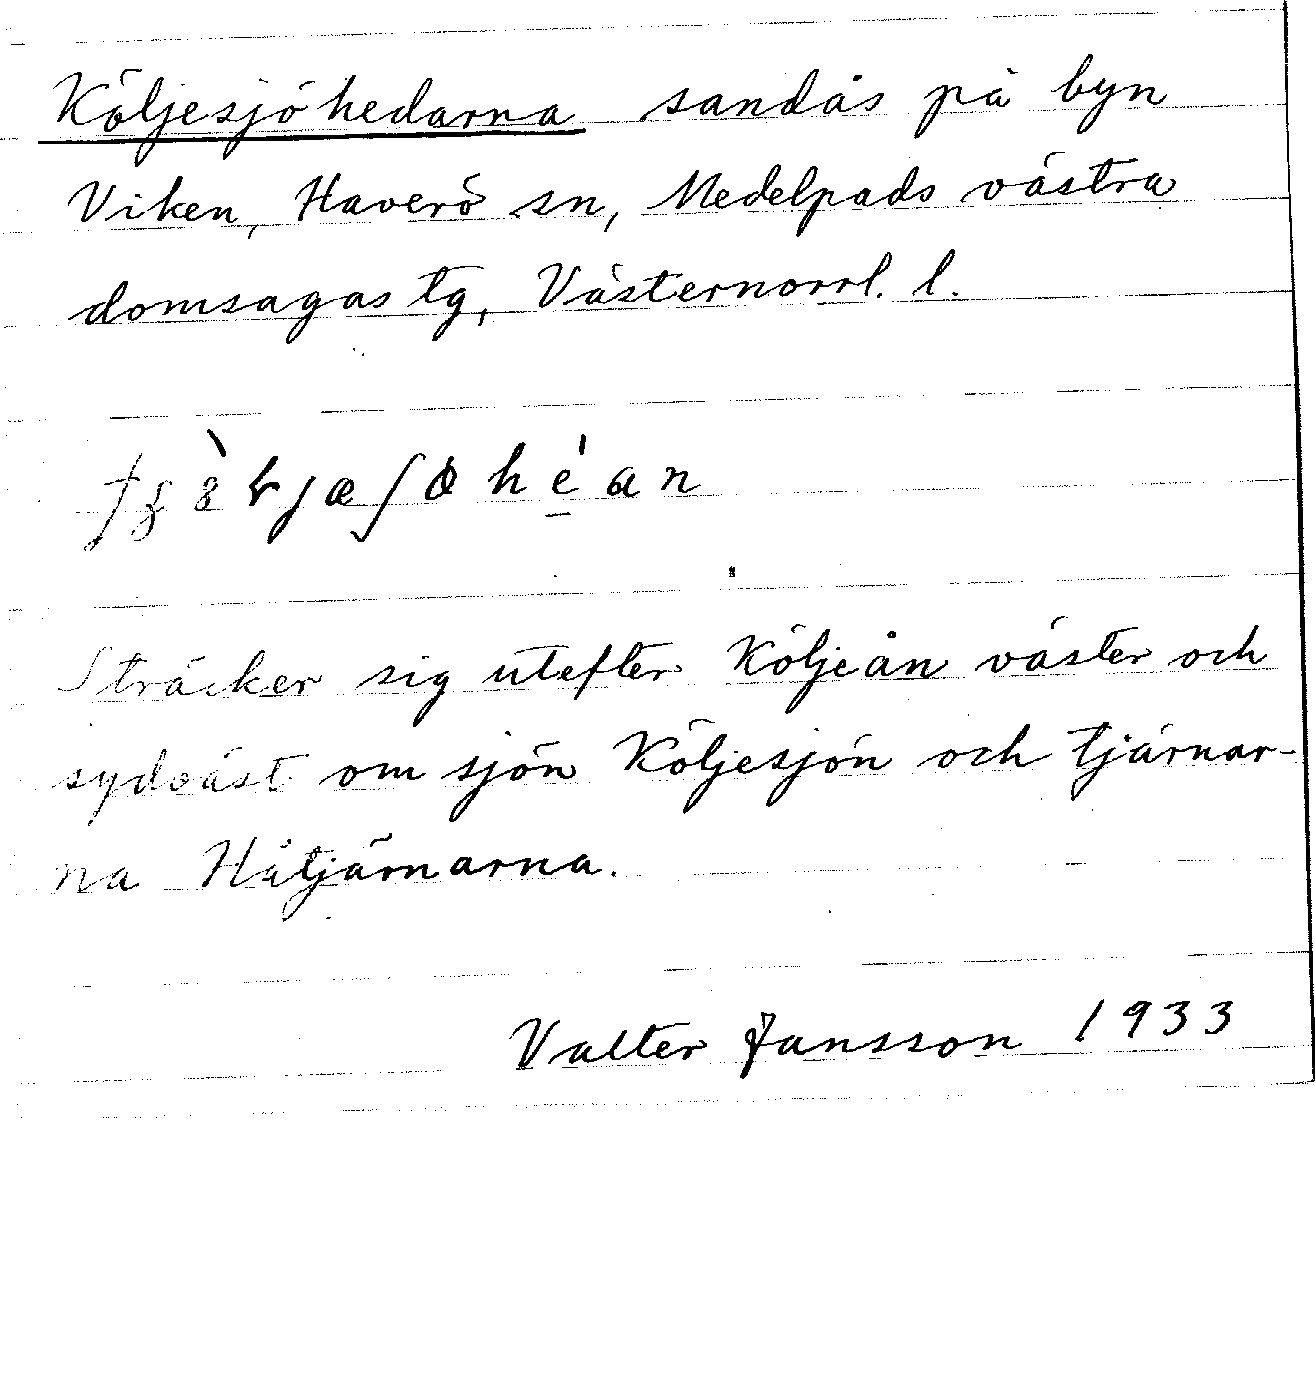 Köljesjöhedarna sandås på byn
Viken, Haverö sn, Medelpads västra
domsagas tg, Västernorrl. l.
Sträcker sig utefter Köljeån väster och
sydväst om sjön Köljesjön och tjärnar-
na Håtjärnarna.
Valter Jansson 1933